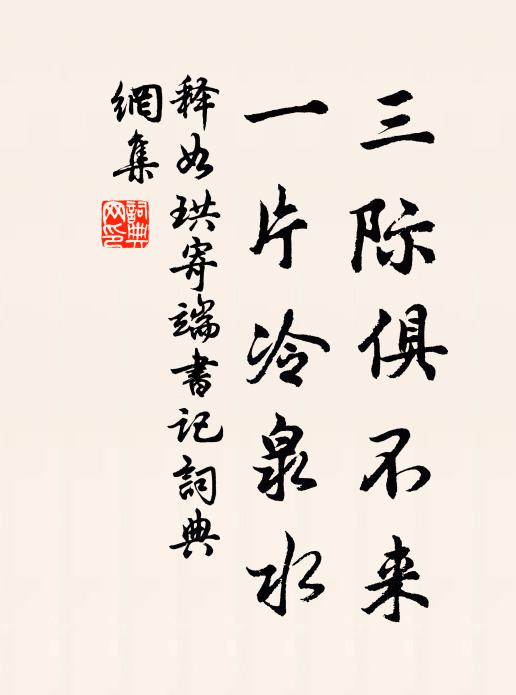 三际俱不来
一片冷泉水
释如珙寄端书记詞典
網集
詞典网印